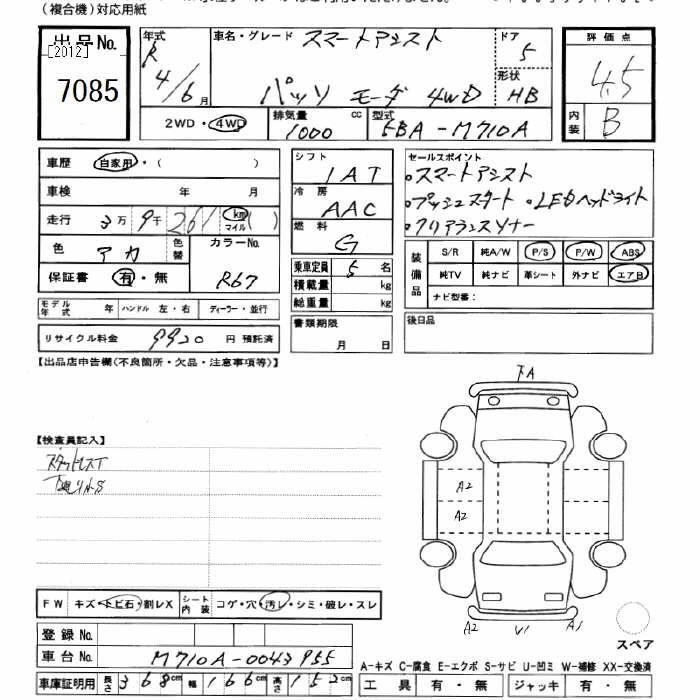 (複合機)対応用紙
出品No.
[2012]
7085
年式 R 4/6月
車名・グレード スマートアシスト
パッソ モーダ 4WD
ドア 5
形状 HB
評価点
4.5
内装 B
2WD・4WD
排気量 1000 cc
型式 EBA-M710A
車歴 自家用・( )
車検 年 月
走行 3万9千261 km マイル ( )
色 アカ 色替
カラーNo. R67
保証書 有・無
モデル年式 年 ハンドル 左・右 ディーラー・並行
リサイクル料金 9920 円 預託済
シフト IAT
冷房 AAC
燃料 G
乗車定員 5 名
積載量 kg
総重量 kg
書類期限
月 日
セールスポイント
・スマートアシスト
・プッシュスタート ・LEDヘッドライト
・クリアランスソナー
装備品
S/R 純A/W P/S P/W ABS
純TV 純ナビ 革シート 外ナビ エアB
ナビ型番:
後日品
【出品店申告欄(不良箇所・欠品・注意事項等)】
下A
【検査員記入】
スタッドレスT
A2
A2
FW キズ・トビ石・割レX シート内装 コゲ・穴・汚レ・シミ・破レ・スレ
A2 U1 A1
スペア
登録No.
車台No. M710A-0043955
A-キズ C-腐食 E-エクボ S-サビ U-凹ミ W-補修 XX-交換済
車庫証明用 長さ 368cm 幅 166cm 高さ 152cm
工具 有・無 ジャッキ 有・無